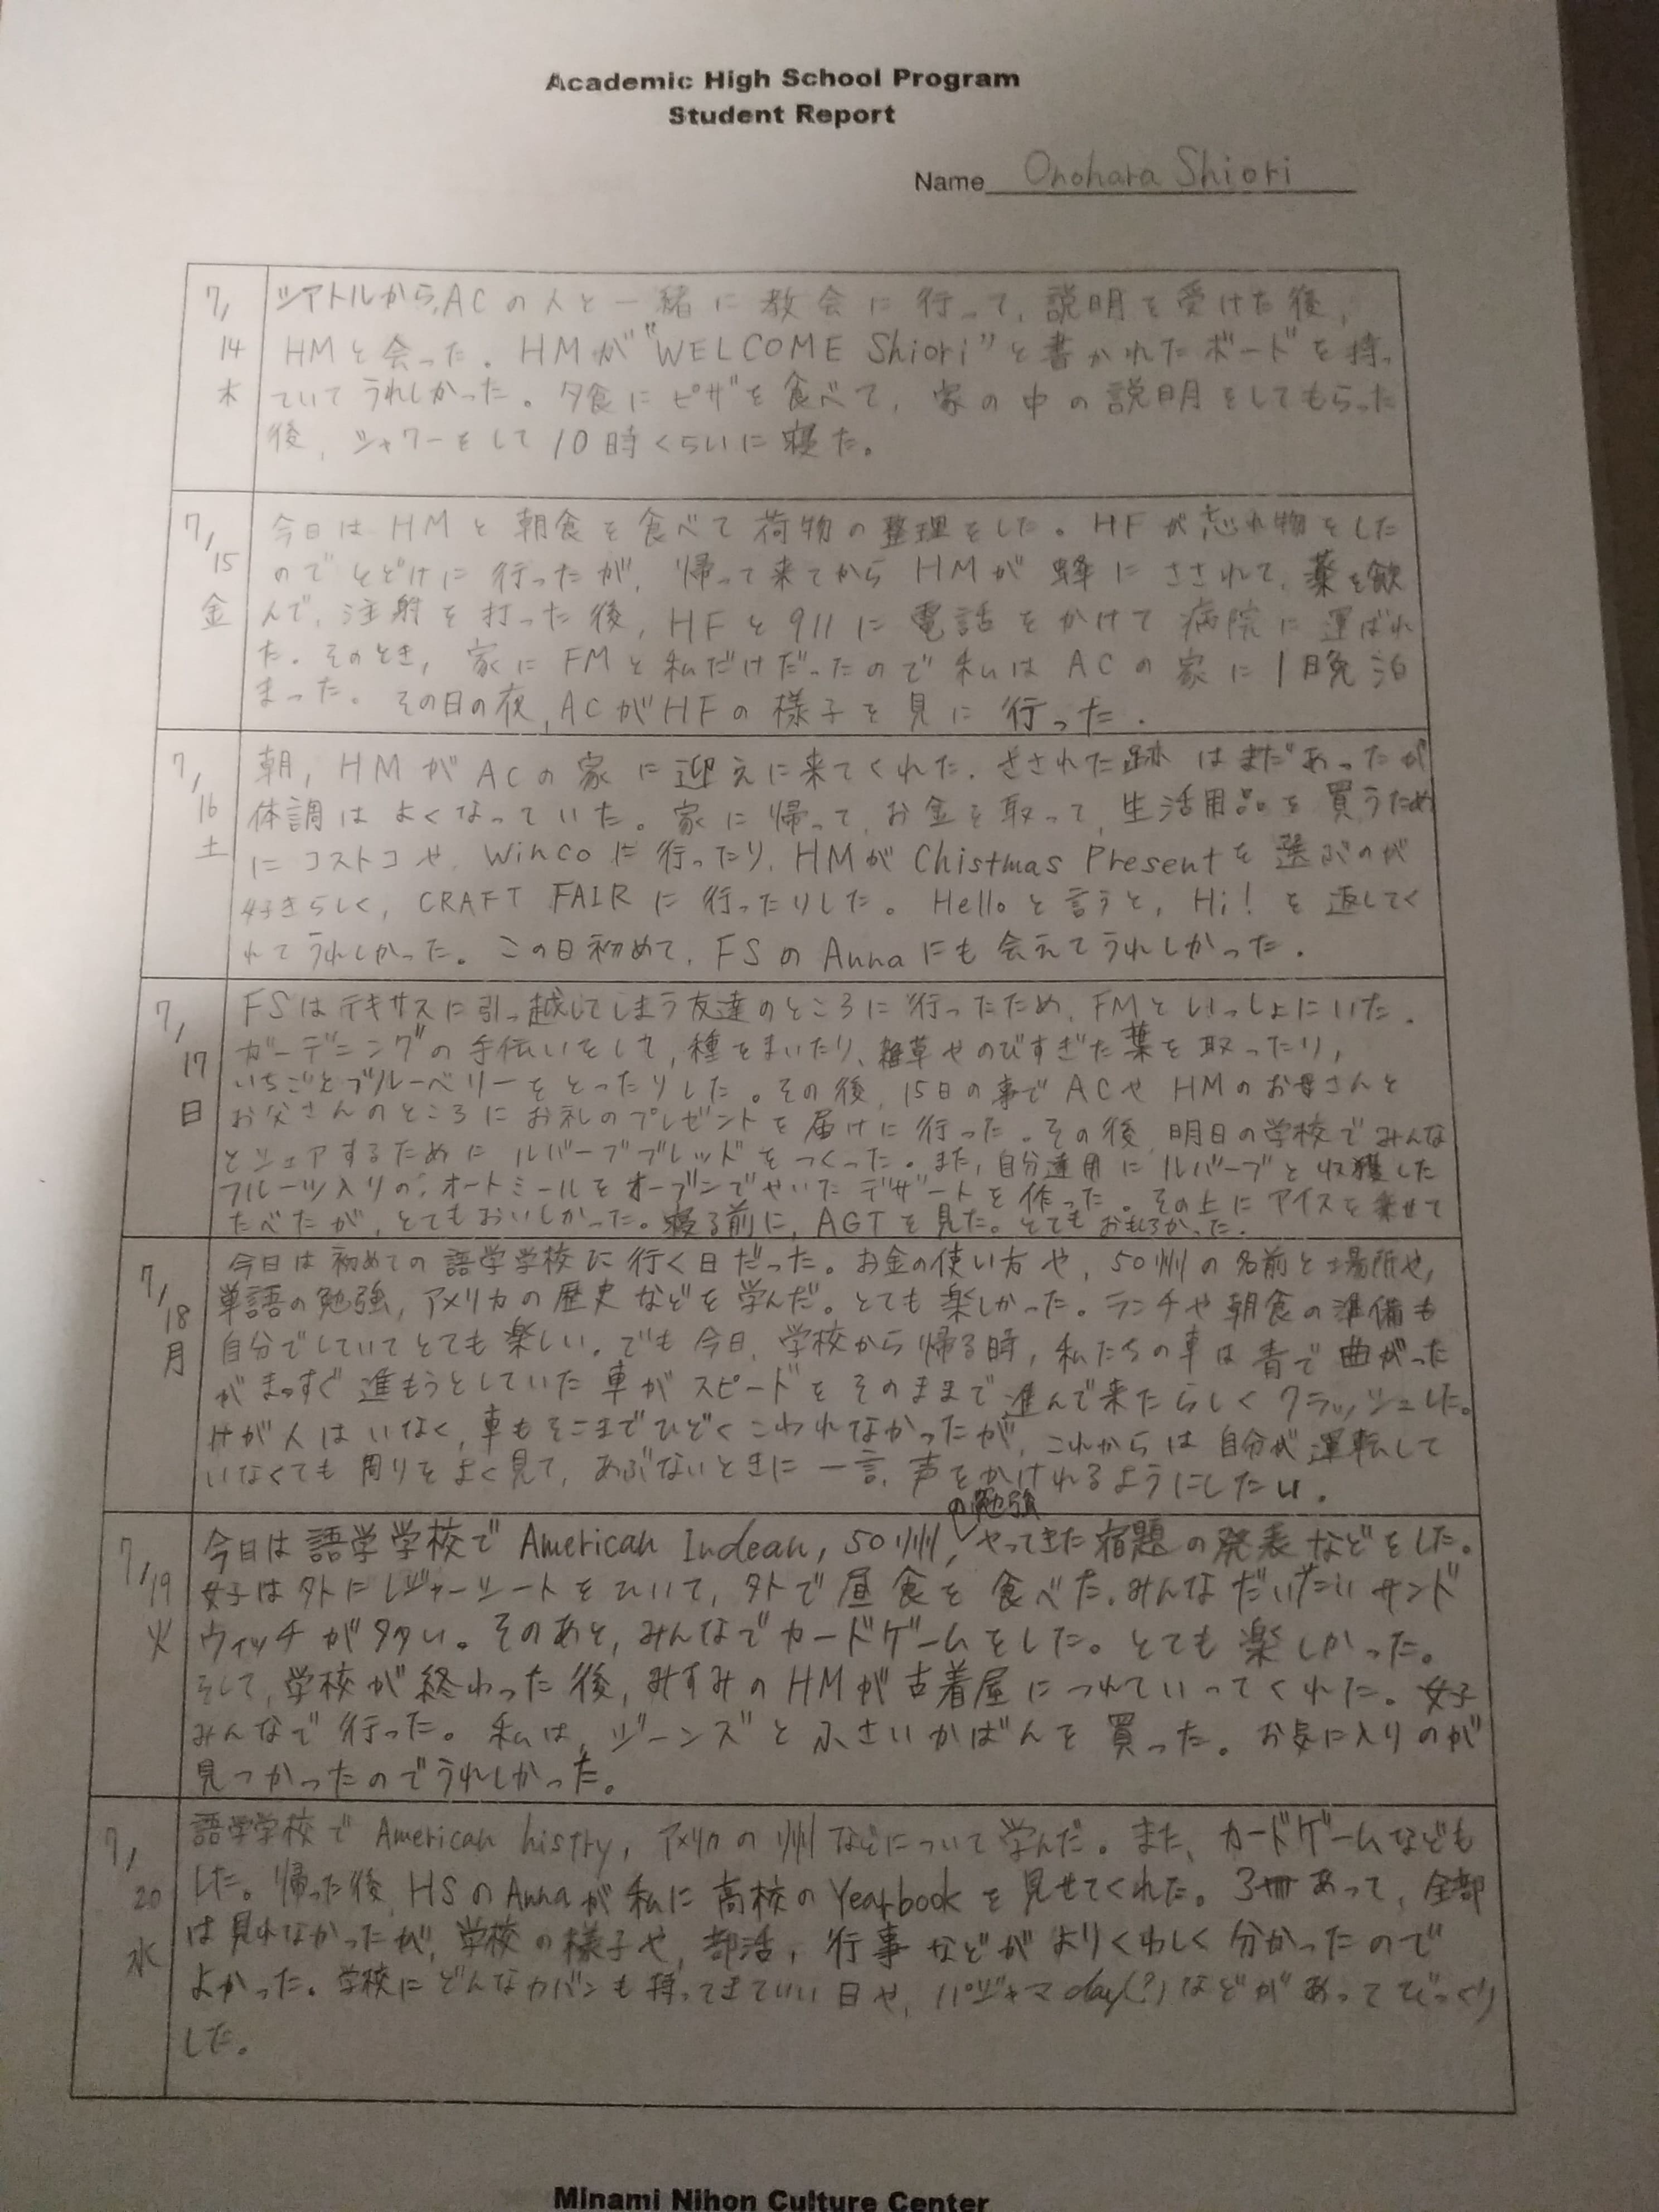 Academic High School Program
Student Report
Name Onohara Shiori
7/14 木
シアトルから、ACの人と一緒に教会に行って、説明を受けた後、
HMと会った。HMが"WELCOME Shiori"と書かれたボードを持っ
ていてうれしかった。夕食にピザを食べて、家の中の説明をしてもらった
後、シャワーをして10時くらいに寝た。
7/15 金
今日はHMと朝食を食べて荷物の整理をした。HFが忘れ物をした
のでとどけに行ったが、帰って来てからHMが蜂にさされて、薬を飲
んで、注射を打った後、HFと911に電話をかけて病院に運ばれ
た。そのとき、家にFMと私だけだったので私はACの家に1晩泊
まった。その日の夜、ACがHFの様子を見に行った。
7/16 土
朝、HMがACの家に迎えに来てくれた。さされた跡はまだあったが
体調はよくなっていた。家に帰って、お金を取って、生活用品を買うため
にコストコや、WinCoに行ったり、HMがChistmas Presentを選ぶのが
好きらしく、CRAFT FAIRに行ったりした。Helloと言うと、Hi!を返してく
れてうれしかった。この日初めて、FSのAnnaにも会えてうれしかった。
7/17 日
FSはテキサスに引っ越してしまう友達のところに行ったため、FMといっしょにいた。
ガーデニングの手伝いをして、種をまいたり、雑草やのびすぎた葉を取ったり、
いちごとブルーベリーをとったりした。その後、15日の事でACやHMのお母さんと
お父さんのところにお礼のプレゼントを届けに行った。その後、明日の学校でみんな
とシェアするためにルバーブブレッドをつくった。また、自分達用にルバーブと収獲した
フルーツ入りの、オートミールをオーブンでやいたデザートを作った。その上にアイスを乗せて
たべたが、とてもおいしかった。寝る前に、AGTを見た。とてもおもしろかった。
7/18 月
今日は初めての語学学校に行く日だった。お金の使い方や、50州の名前と場所や、
単語の勉強、アメリカの歴史などを学んだ。とても楽しかった。ランチや朝食の準備も
自分でしていてとても楽しい。でも今日、学校から帰る時、私たちの車は青で曲がった
がまっすぐ進もうとしていた車がスピードをそのままで進んで来たらしくクラッシュした。
けが人はいなく、車もそこまでひどくこわれなかったが、これからは自分が運転して
いなくても周りをよく見て、あぶないときに一言、声をかけれるようにしたい。
7/19 火
の勉強
今日は語学学校でAmerican Indean, 50州、やってきた宿題の発表などをした。
女子は外にレジャーシートをひいて、外で昼食を食べた。みんなだいたいサンド
ウィッチが多い。そのあと、みんなでカードゲームをした。とても楽しかった。
そして、学校が終わった後、みすみのHMが古着屋につれていってくれた。女子
みんなで行った。私は、ジーンズと小さいかばんを買った。お気に入りのが
見つかったのでうれしかった。
7/20 水
語学学校でAmerican histry, アメリカの州などについて学んだ。また、カードゲームなども
した。帰った後、HSのAnnaが私に高校のYearbookを見せてくれた。3冊あって、全部
は見れなかったが、学校の様子や、部活、行事などがよりくわしく分かったので
よかった。学校にどんなカバンも持ってきていい日や、パジャマday(?)などがあってびっくり
した。
Minami Nihon Culture Center